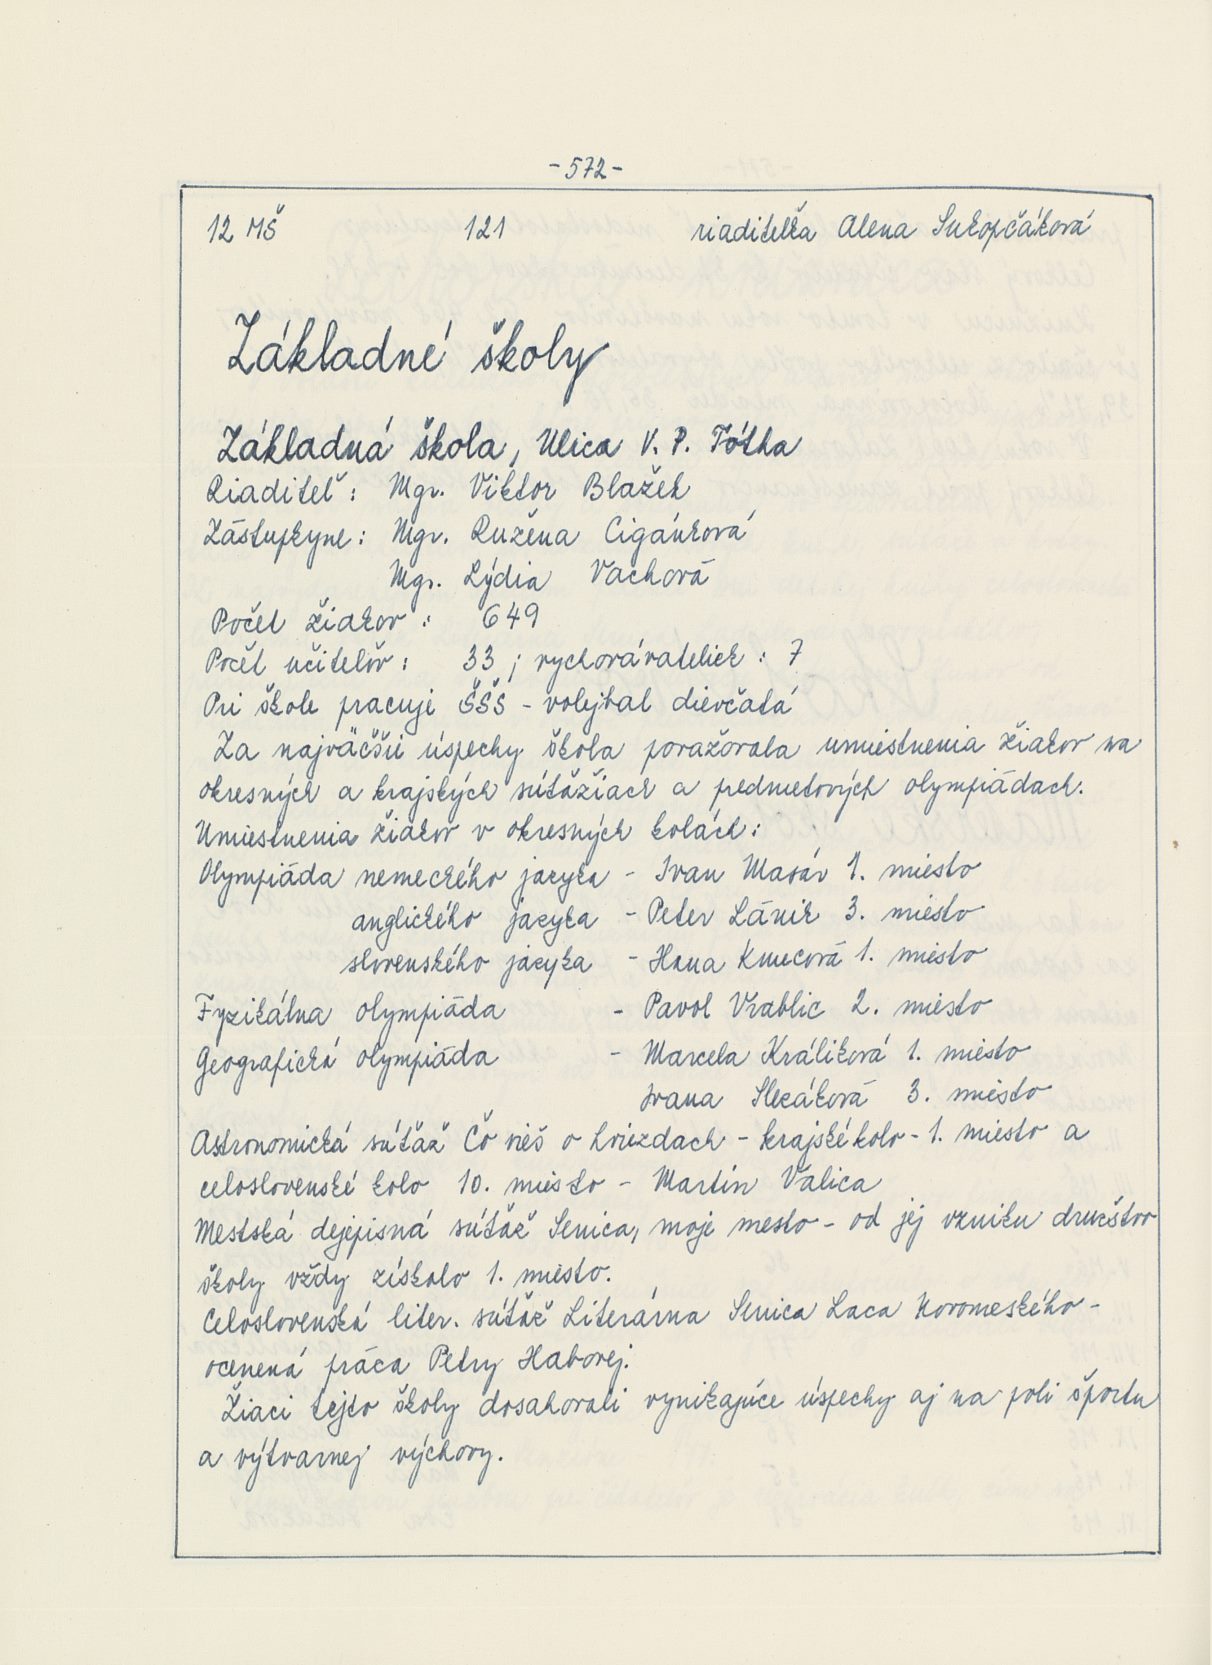 - 572 -
12 MŠ 121 riaditeľka Alena Sukopčáková
Základné školy
Základná škola, Ulica V. P. Tótha
Riaditeľ : Mgr. Viktor Blažek
Zástupkyne : Mgr. Ružena Cigánková
Mgr. Lýdia Vachová
Počet žiakov : 649
Počet učiteľov : 33 ; vychovávateliek : 7
Pri škole pracuje ŠŠŠ - volejbal dievčatá
Za najväčšie úspechy škola považovala umiestnenia žiakov na
okresných a krajských súťažiach a predmetových olympiádach.
Umiestnenia žiakov v okresných kolách :
Olympiáda nemeckého jazyka - Ivan Masár 1. miesto
anglického jazyka - Peter Lánik 3. miesto
slovenského jazyka - Hana Kmecová 1. miesto
Fyzikálna olympiáda - Pavol Vrablic 2. miesto
Geografická olympiáda - Marcela Králiková 1. miesto
Ivana Slezáková 3. miesto
Astronomická súťaž Čo vieš o hviezdach - krajské kolo - 1. miesto a
celoslovenské kolo 10. miesto - Martin Valica
Mestská dejepisná súťaž Senica, moje mesto - od jej vzniku družstvo
školy vždy získalo 1. miesto.
Celoslovenská liter. súťaž Literárna Senica Laca Novomeského -
ocenená práca Petry Haborej.
Žiaci tejto školy dosahovali vynikajúce úspechy aj na poli športu
a výtvarnej výchovy.